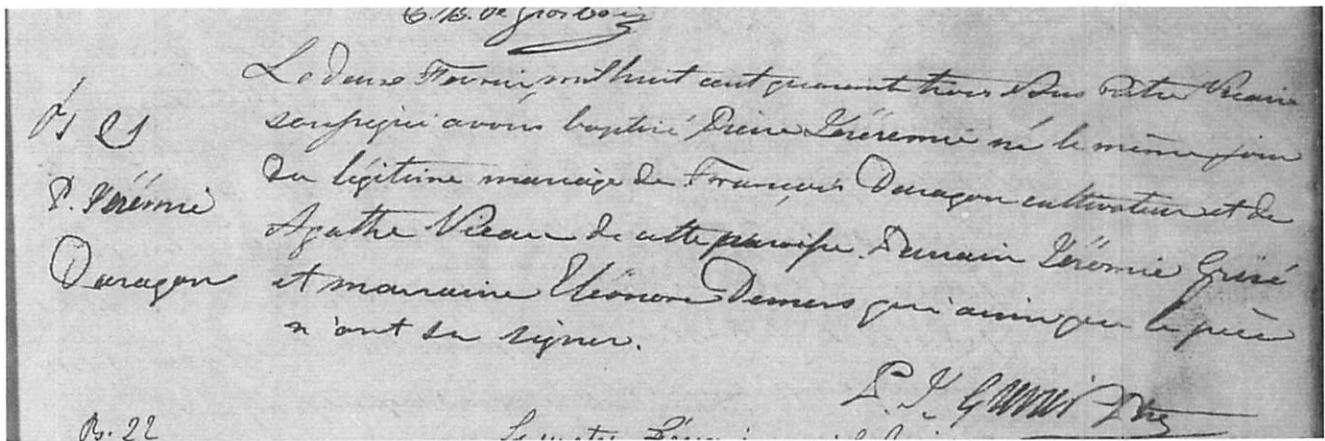 Le deux Fevrier, mil huit cent quarante trois Nous Prêtre Vicaire
B 21
soussigné avons baptisé Pierre Jérémie né le même jour
P. Jérémie
du légitime mariage de François Daragon cultivateur et de
Daragon
Agathe de cette paroisse. Parrain Jérémie
et marraine Eléonore Demers qui ainsi que le père
n'ont su signer.
P. J. Ptre
B. 22